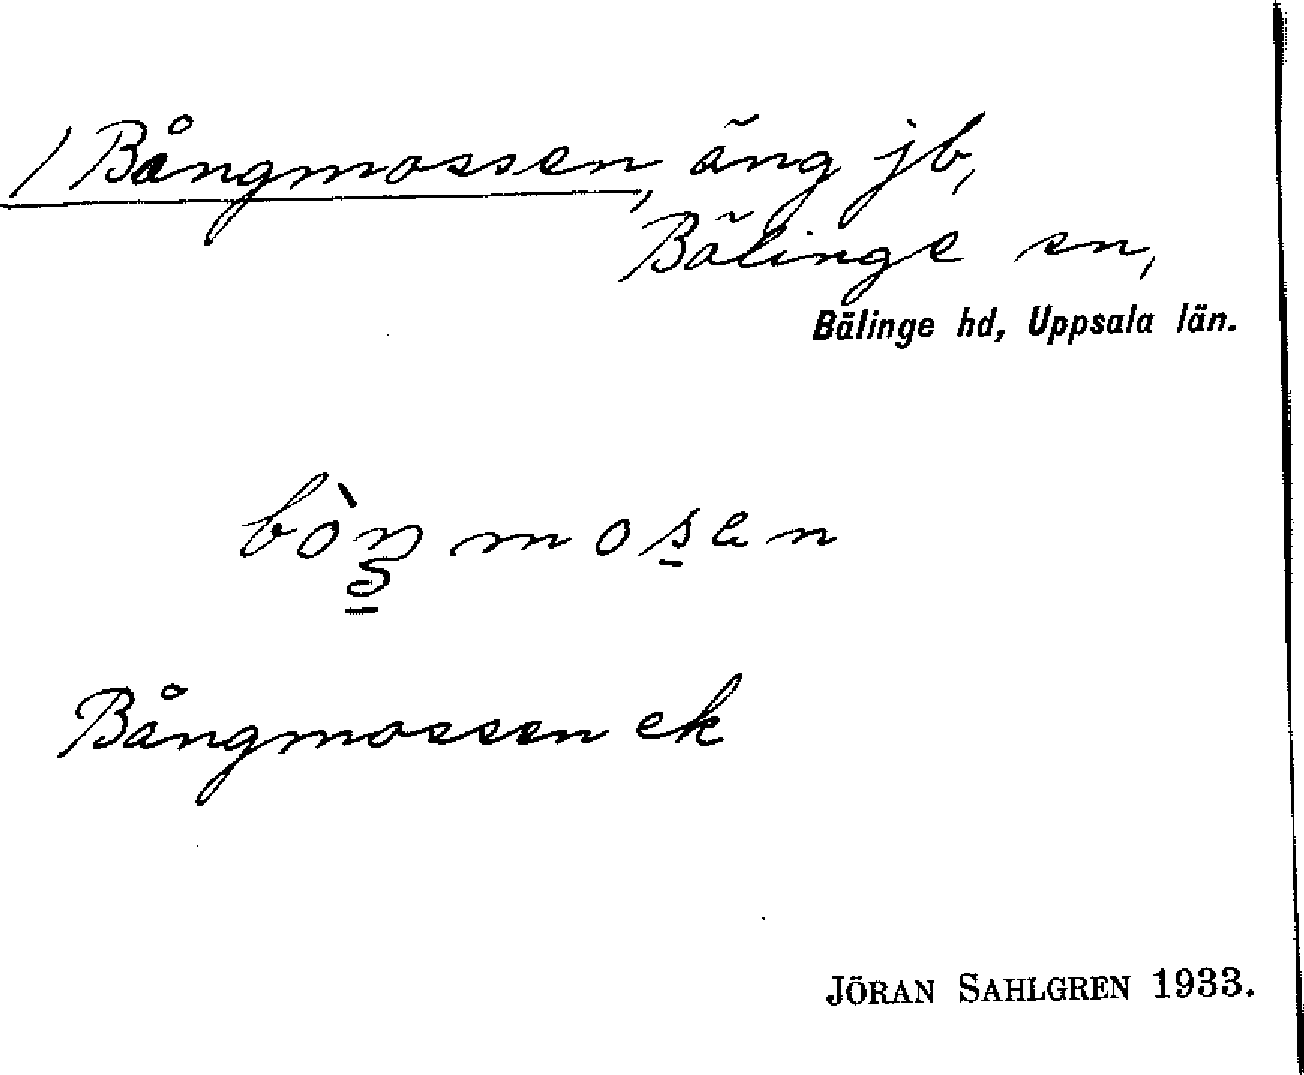 / Bångmossen, äng jb,
Bälinge sn,
Bälinge hd, Uppsala län.
bòŋ̱mos̱en
Bångmossen ek
JÖRAN SAHLGREN 1933.